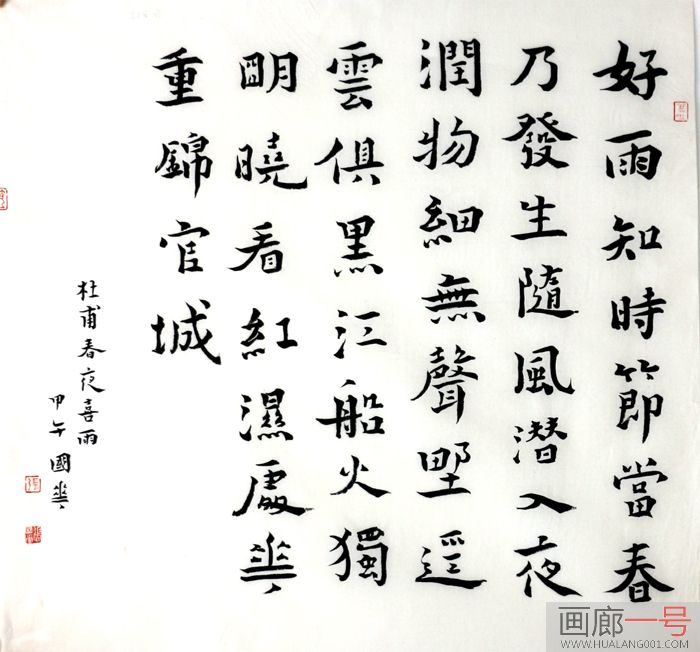 好雨知時節當春
乃發生隨風潛入夜
潤物細無聲野逕
雲俱黑江船火獨
明曉看紅濕處華
重錦官城
杜甫春夜喜雨
甲午國華
画廊一号
WWW.HUALANG001.COM